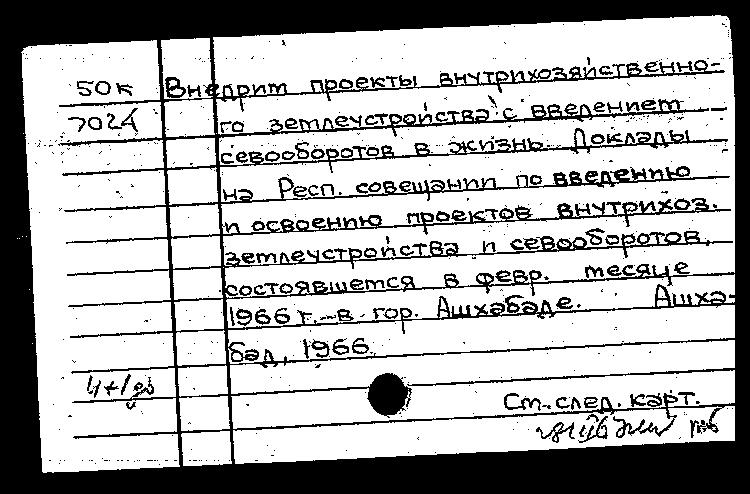 50к Внедрит проекты внутрихозяйственно-
702 го землеустройства с введением
севооборотов в жизнь. Доклады
на Респ. совещании по введению
и освоению проектов внутрихоз.
землеустройства и севооборотов,
состоявшемся в февр. месяце
1966 г. в гор. Ашхабаде. Ашха-
бад, 1966
4+1
Ст. след. карт.